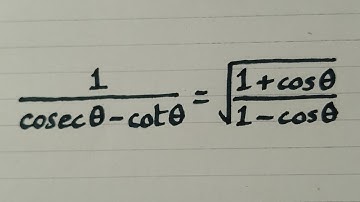 1/(cosecθ-cotθ) = √((1+cosθ)/(1-cosθ))